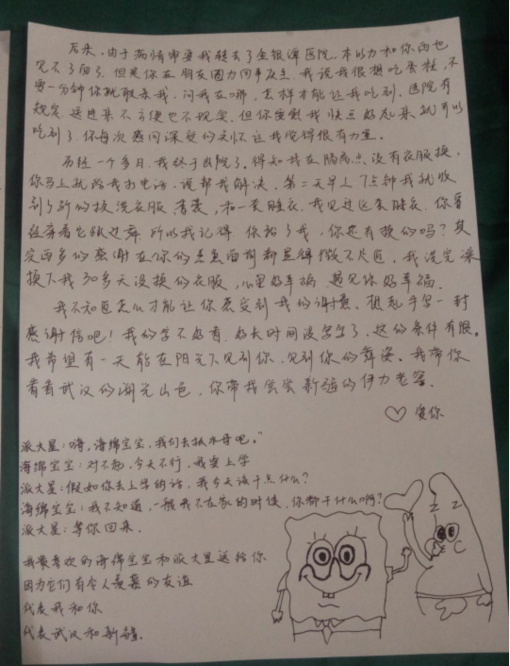 后来,由于病情需要我转去了金银潭医院,本以为和你再也
见不了面了,但是你在朋友圈力问我在点,我说我很想吃香蕉,不
要一分钟你就联系我,问我在哪,怎样才能让我吃到,医院有
规定,送进来不方便也不现实,但你安慰我快点好起来就可以
吃到了,你每次感同深受的关怀让我觉得很有力量。
历经一个多月,我终于出院了,得知我在隔离点没有衣服换,
你马上就给我打电话,说帮我解决,第二天早上7点钟我就收
到了新的换洗衣服,薯条,和一套睡衣,我见过这套睡衣,你曾
经穿着它跳过舞,所以我记得,你给了我,你还有换的吗?其
实再多的感谢在你的善良面前都显得微不足道,我洗完澡
换下我30多天没换的衣服,心里好幸福,遇见你好幸福。
我不知道怎么才能让你感受到我的谢意,提起手写一封
感谢信吧!我的字不好看,好长时间没写字了,这的条件有限。
我希望有一天能在阳光下见到你,见到你的舞姿。我带你
看看武汉的湖光山色,你带我尝尝新疆的伊力老窖。
♡爱你
派大星:嗨,海绵宝宝,我们去抓水母吧。"
海绵宝宝:对不起,今天不行,我要上学
派大星:假如你去上学的话,我今天该干点什么?
海绵宝宝:我不知道,一般我不在家的时候,你都干什么啊?
派大星:等你回来.
我最喜欢的海绵宝宝和派大星送给你
因为它们有令人羡慕的友谊
代表我和你
代表武汉和新疆.